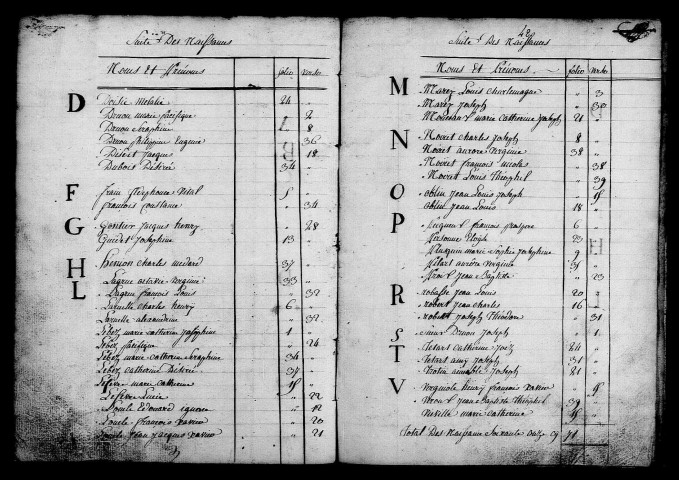 Suite Des Naissances
Noms et Prénoms folio verso
D
Doisie Natalie 24 "
Druon marie pacifique " 2
Druon Séraphine " 8
Druon philippine Eugénie " 36
Désert Jacques " 18
Dubois Désirée 34 "
F
franc Théophore Vital "
francois Constance " 34
G
Gontier Jacques henry " 28
Guidez Josephine 13 "
H
henson Charles médard 37 "
L
Lagrue Artiste virginie 33 "
Lagrue françois Louis " 32
Larnelle Charles henry 6 "
Larnelle alexandrine " 32
Lebez marie catherine Josephine 1 "
Lebez pacifique " 24
Lebez marie catherine Séraphine 34 "
Lebez catherine Désirée 37 "
Lefevre marie catherine "
Lefevre Lucie " 22
Louile Edouard " 12
Louile françois xavier " 20
Louile Jean Jacques xavier " 21
Suite Des Naissances
Noms et Prénoms folio verso
M
Marez Louis Charlemagne " 3
Marez Joseph " 30
marie Catherine Joseph 21 "
N
Noiret Charles Joseph 8 "
Noiret aurore virginie 38 "
Noiret françois nicolas " 38
Noiret Louis Théophil " 39
O
oblin Jean Louis Joseph "
oblin Jean Louis 18 "
P
françois prospere 6 "
Personne Eloiph 23 "
marie Sophie Josephine 9 "
aurore virginie 31 "
Jean Baptiste " 23
R
Jean Louis 20 "
Robert Jean Charles 16 "
Robert Joseph Théodore " 31
S
Druon Joseph " 1
T
Tétart Catherine 24 "
Tétart aimy Joseph 31 "
aimable Joseph 21 "
V
Vergniole henry françois xavier "
Jean Baptiste Théophil 39 "
marie Catherine "
Total Des Naissances Soixante Onze Cy 71